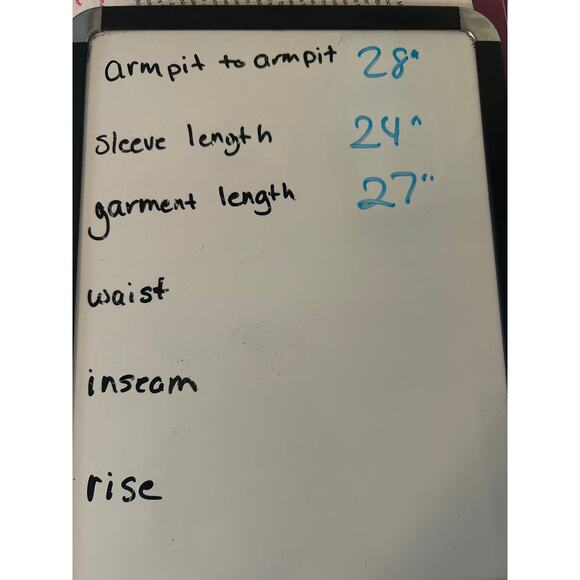 armpit to armpit 28"
sleeve length 24"
garment length 27"
waist
inseam
rise